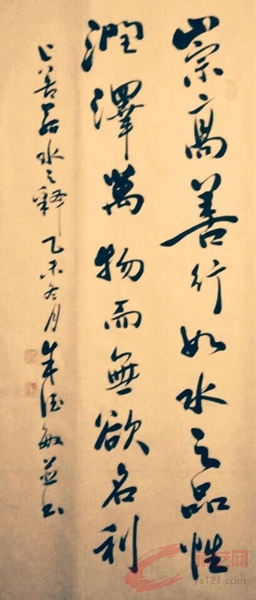 崇高善行如水之品性
润泽万物而無欲名利
上善若水之释 乙未冬月 朱德敏並书
ys121.com